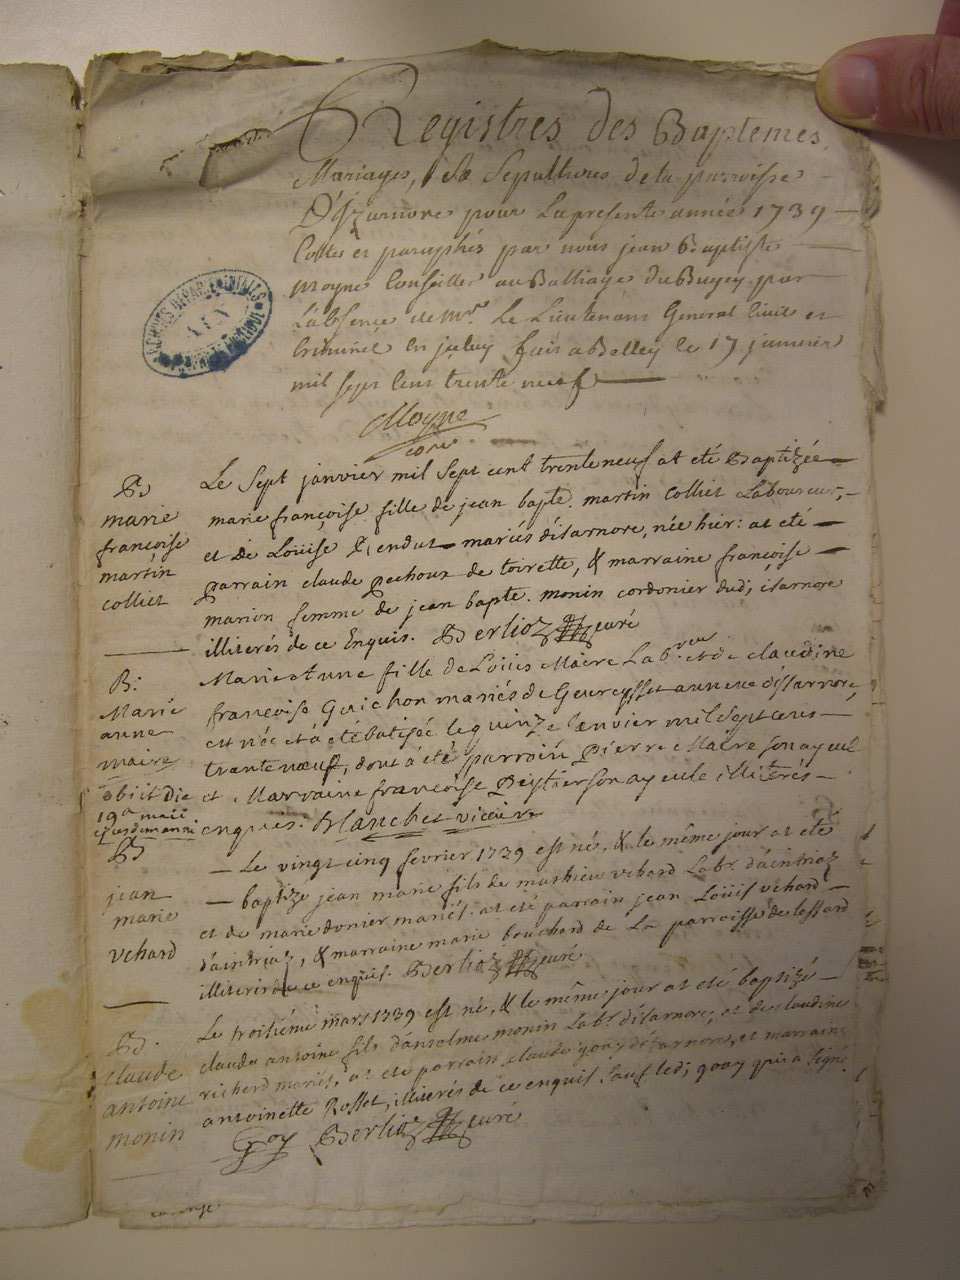 Registres des Baptemes
Mariages, & Sepultures de la parroisse
D'Izarnore pour La presente année 1739
Cottes et paraphés par nous jean Baptiste
Moyne Conseiller au Balliage du Bugey par
L'absence de Mr. Le Lieutenant General Civil et
Criminel En jceluy fait a Belley le 17 janvier
mil sept Cent trente neuf
Moyne
ARCHIVES DEPARTEMENTALES
AIN
B
marie
françoise
martin
colliet
Le Sept janvier mil Sept cent trente neuf at eté Baptizée
marie françoise fille de jean bapte. martin Colliet Laboureur,
et De Loüise mariés d'isarnore, née hier: at eté
parrain claude pechoux de toirette, & marraine françoise
marion femme de jean bapte. monin cordonier dud; isarnore
illiterés de ce Enquis. Berlioz curé
B:
Marie
anne
maire
obiit die
19a maii
Marie Anne fille de Loüis Maire Labr et de claudine
françoise Guichon mariés de Geureysset annexe d'isarnore,
est née et a été batisée le quinze Janvier mil sept cens
trante neuf, dont a été parrain Pierre Maire son ayeul
et Marraine françoise Reydier son ayeule illiterés
enquis. Blanchet vicaire
B
jean
marie
vchard
Le vingt cinq fevrier 1739 est né, & le même jour at eté
baptizé jean marie fils de mathieu vchard Labr. d'aintriaz
et de marie donier mariés. at eté parrain jean Loüis vchard
d'aintriaz, & marraine marie bouchard de La parroisse de lessard
de ce enquis. Berlioz curé
B.
claude
antoine
monin
Le troisiéme mars 1739 est né, & le même jour at eté baptizé
claude antoine fils d'anselme monin Labr. d'isarnore, et de claudine
richerd mariés, at eté parrain claude goay d'isarnore, et marraine
antoinette Rosset, illiterés de ce enquis Sauf led; goay qui a signé
Goy Berlioz curé